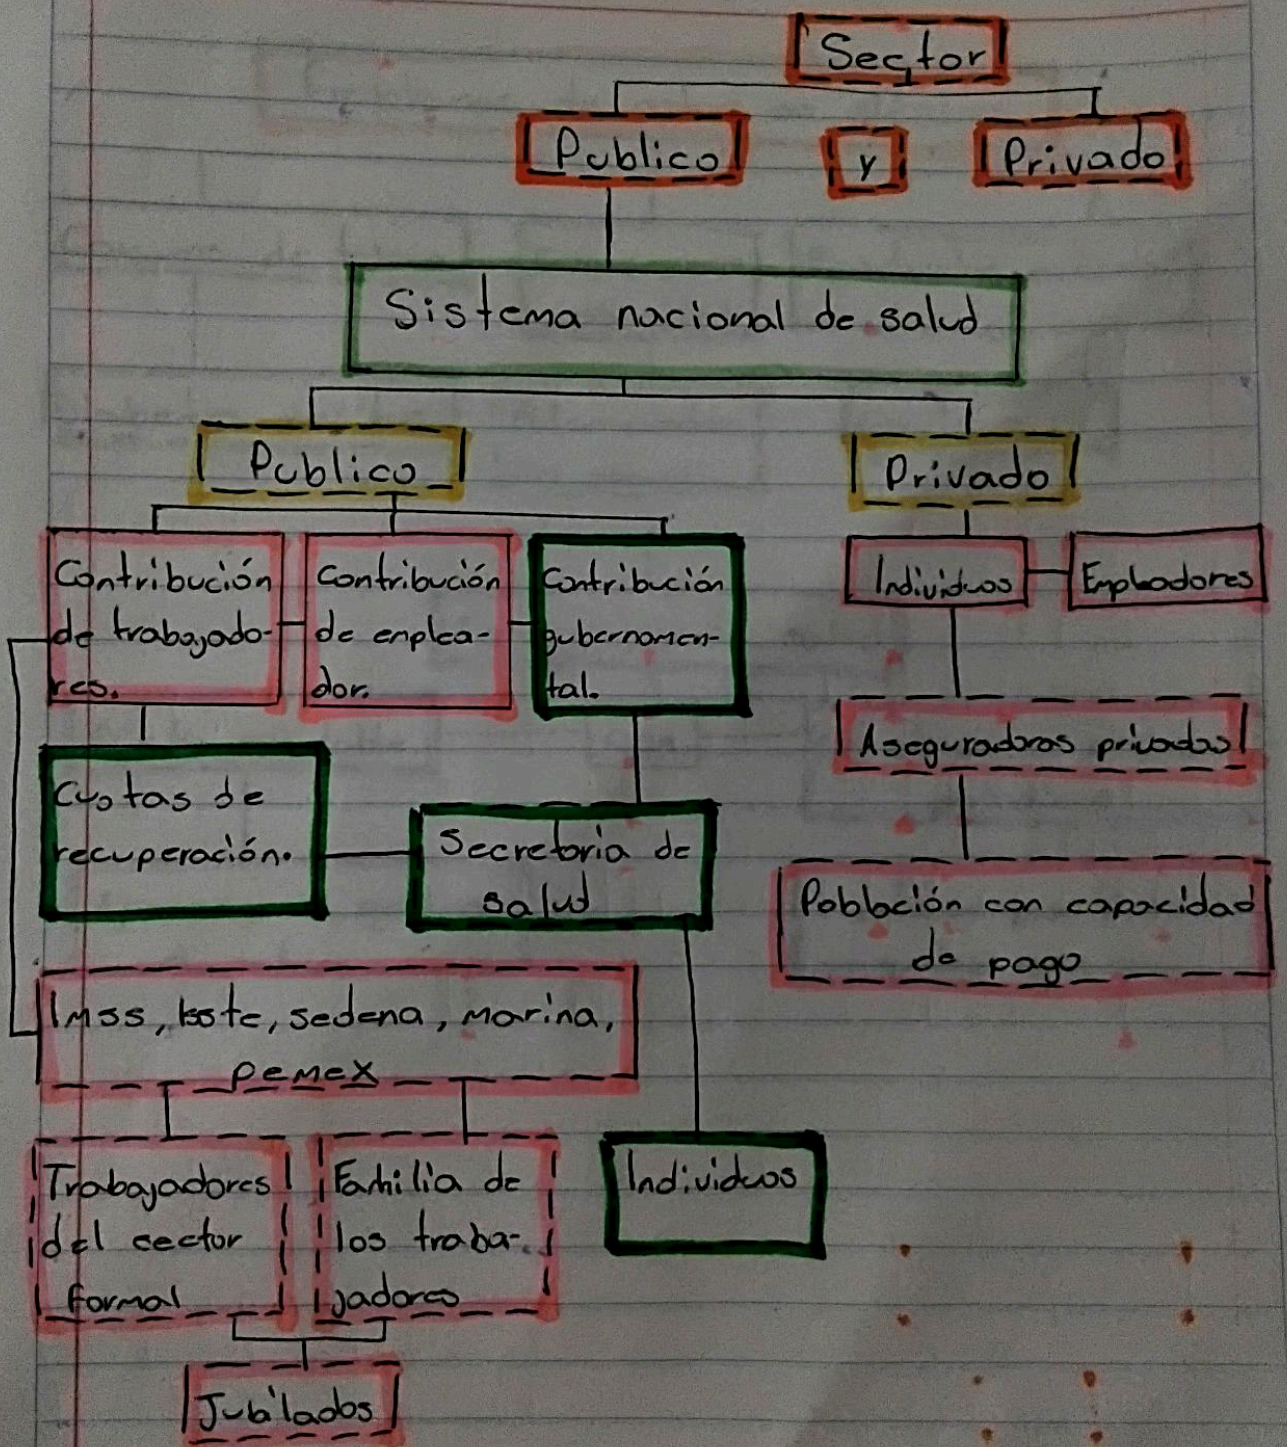 Sector
Publico y Privado
Sistema nacional de salud
Publico
Privado
Contribución
de trabajado-
res.
Contribución
de emplea-
dor.
Contribución
gubernamen-
tal.
Individuos
Empleadores
Aseguradoras privadas
Cuotas de
recuperación.
Secretaria de
salud
Población con capacidad
de pago
Imss, Isste, sedena, marina,
pemex
Trabajadores
del sector
formal
Familia de
los traba-
jadores
Individuos
Jubilados